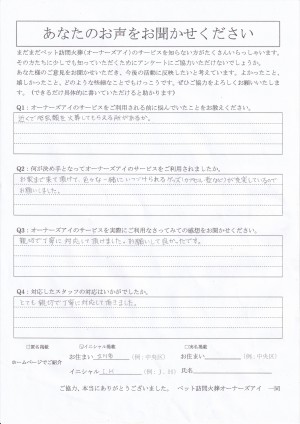 あなたのお声をお聞かせください
まだまだペット訪問火葬(オーナーズアイ)のサービスを知らない方がたくさんいらっしゃいます。
その方たちに少しでも知っていただくためにアンケートにご協力いただけないでしょうか。
あなた様のご意見をお聞かせいただき、今後の活動に反映したいと考えています。よかったこと、
嬉しかったこと、どのような些細なことでもけっこうです。ぜひご協力をよろしくお願いいたしま
す。（できるだけ具体的に書いていただけると助かります）
Q1：オーナーズアイのサービスをご利用される前に悩んでいたことをお教えください。
近くで
を火葬してもらえる所があるか。
Q2：何が決め手となってオーナーズアイのサービスをご利用されましたか。
お家まで来て頂けて、色々な一緒にいつづけられるグッズ(カプセル
など)が充実しているので
お願いしました。
Q3：オーナーズアイのサービスを実際にご利用なさってみての感想をお聞かせください。
親切で丁寧に対応して頂けました。お願いして良かったです。
Q4：対応したスタッフの対応はいかがでしたか。
とても親切で丁寧に対応して頂きました。
□匿名掲載 ☑イニシャル掲載 □実名掲載
ホームページでご紹介
お住まい
（例：中央区） お住まい （例：中央区）
イニシャル I.H （例：J．H） 氏名
ご協力、本当にありがとうございました。 ペット訪問火葬オーナーズアイ